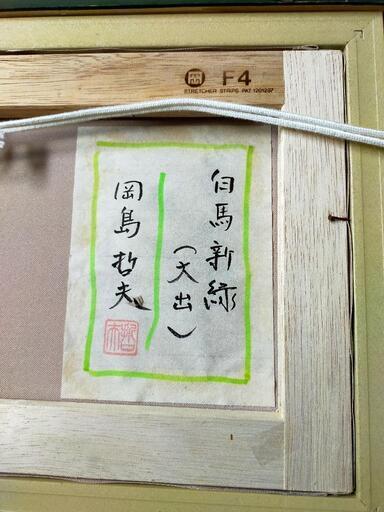 F4
STRETCHER STRIPS PAT.1201207
白馬新緑
(大出)
岡島哲夫